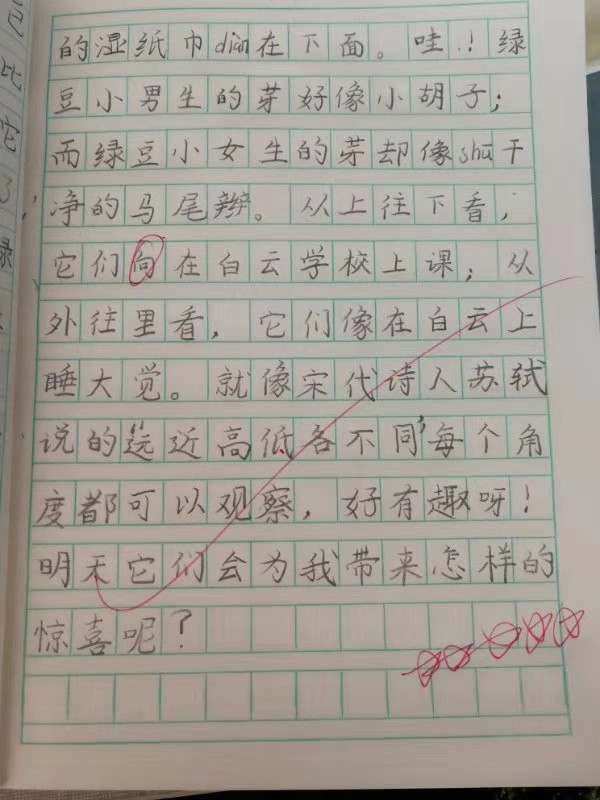 的湿纸巾diàn在下面。哇！绿
豆小男生的芽好像小胡子；
而绿豆小女生的芽却像shū干
净的马尾辫。从上往下看，
它们向在白云学校上课；从
外往里看，它们像在白云上
睡大觉。就像宋代诗人苏轼
说的远近高低各不同，每个角
度都可以观察，好有趣呀！
明天它们会为我带来怎样的
惊喜呢？